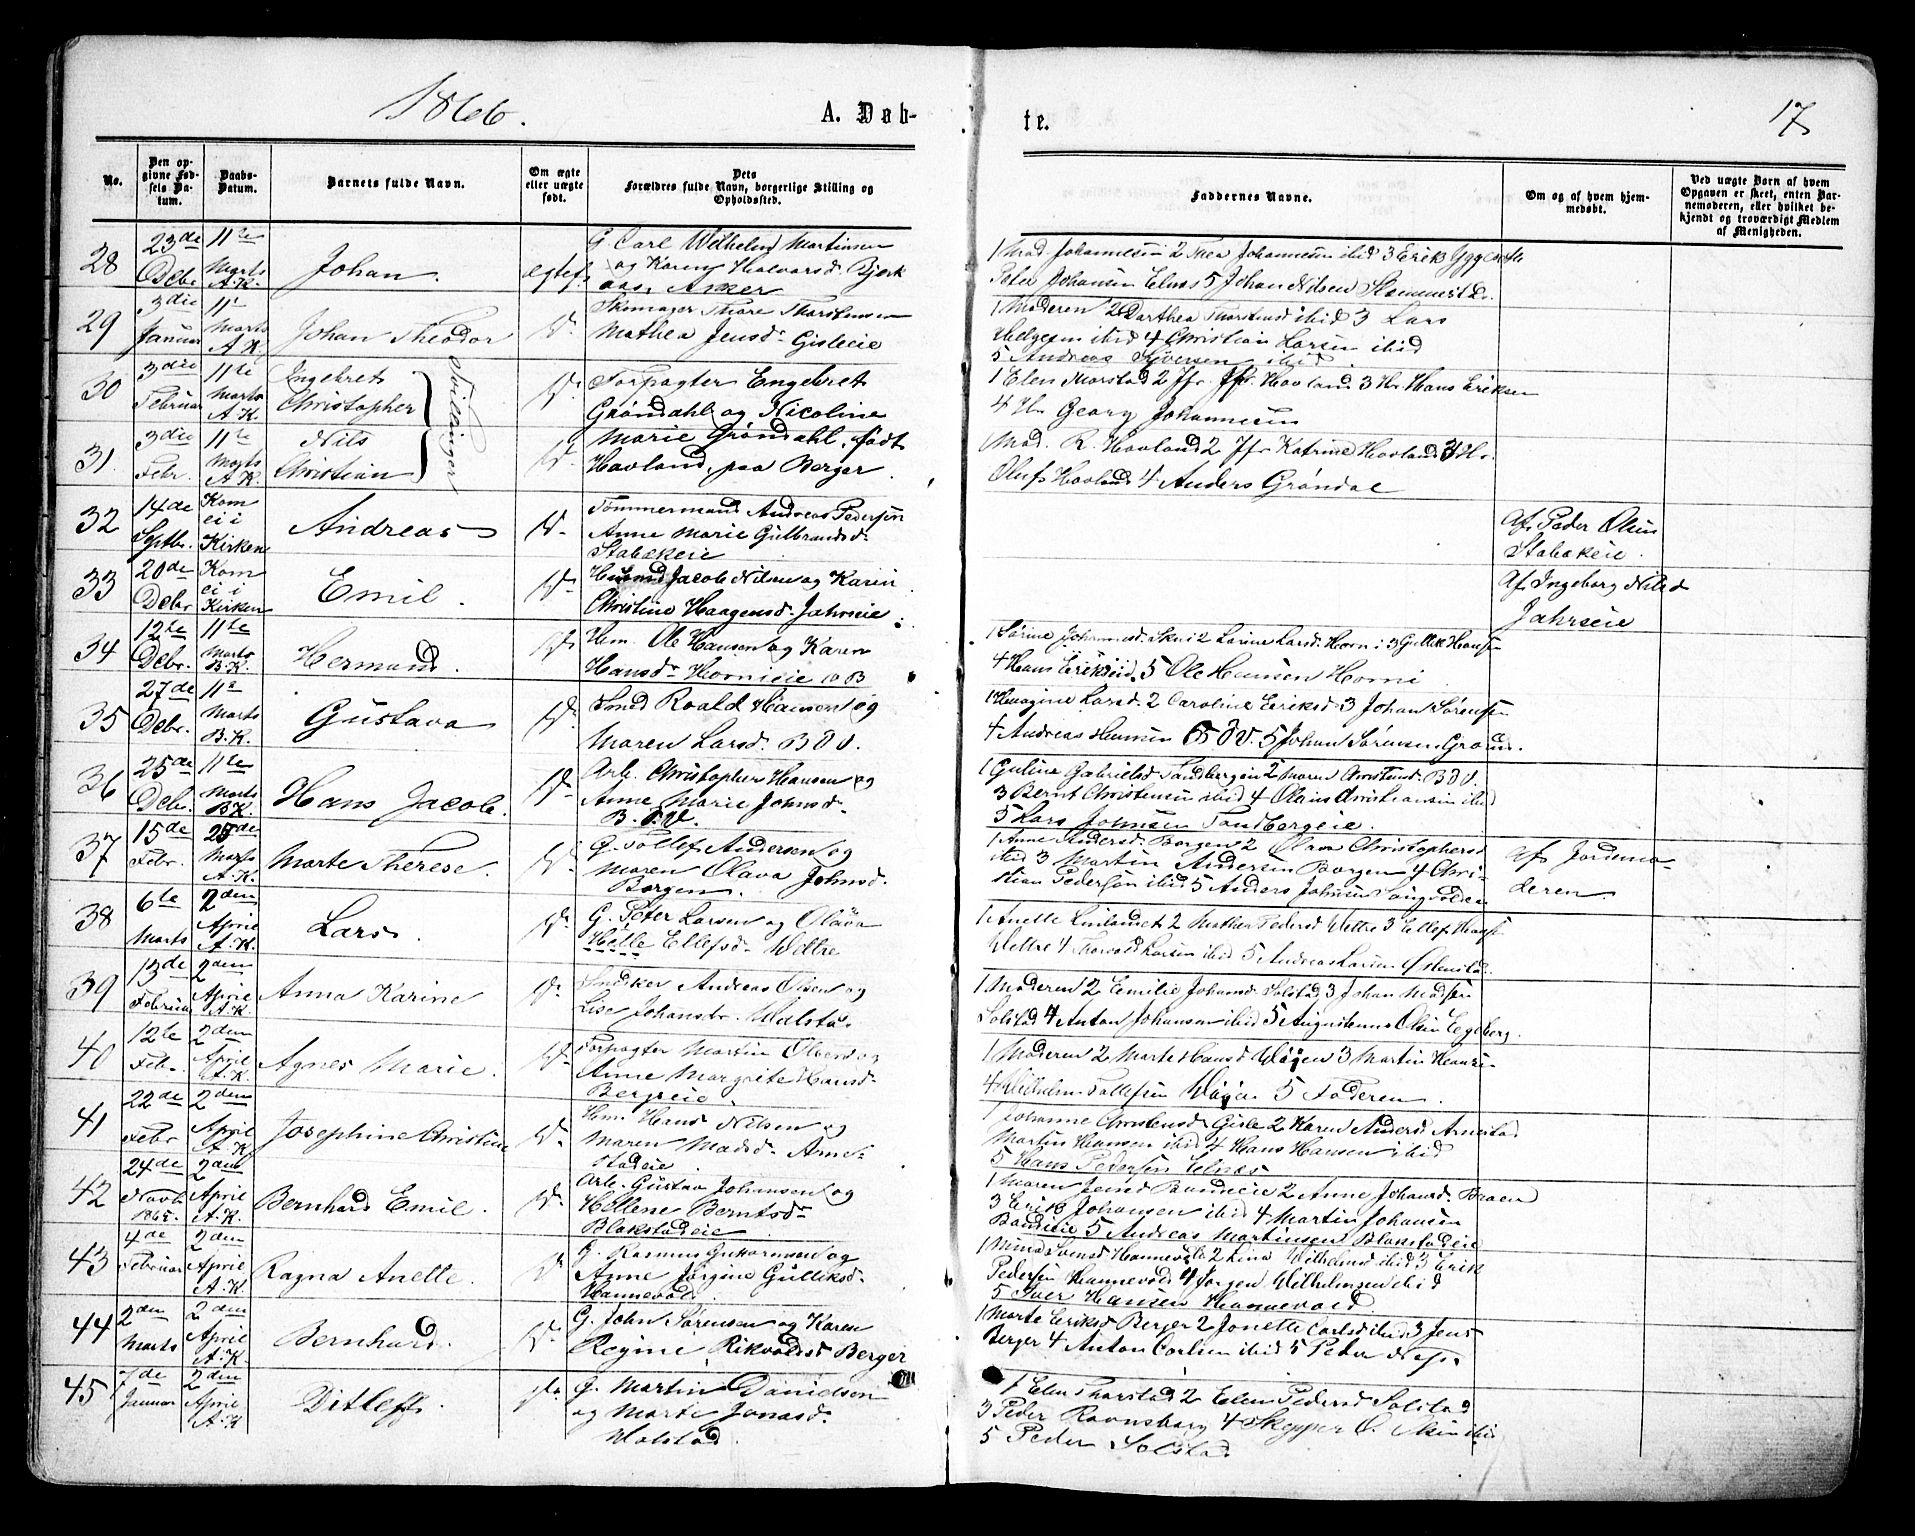 1866.
A. Døb-
te.
17
No.
Den op-
givne Fød-
sels Da-
tum.
Daabs-
Datum.
Barnets fulde Navn.
Om ægte
eller uægte
født.
Dets
Forældres fulde Navn, borgerlige Stilling og
Opholdssted.
Faddernes Navne.
Om og af hvem hjem-
medøbt.
Ved uægte Børn af hvem
Opgaven er skeet, enten Bar-
nemoderen, eller hvilket be-
kjendt og troværdigt Medlem
af Menigheden.
28
23de
Debr
11te
Marts
A.K.
Johan.
ægtef.
G. Carl Wilhelm Martinsen
og Karen Halvorsd. Bjerk
aas, Asker
1 Mad. Johannesen 2 Thea Johannesen ibid 3 Erik
Peter Johansen Elnæs 5 Johan Nilsen
29
3die
Januar
11te
Marts
A.K.
Johan Theodor
D.
Skomager Thore Thorstensen
Mathea Jensdr. Gisleeie
1 Moderen 2 Dorthea Thorstensd ibid 3 Lars
Helgesen ibid 4 Christian Larsen ibid
5 Andreas Syversen ibid
30
3die
Februar
11te
Marts
A.K.
Ingebret
Christopher
Tvillinger
D.
Forpagter Engebret
Grøndahl og Nicoline
1 Elen Morstad 2 Jfr. Hovland 3 Hr Hans Eriksen
4 Hr Georg Johannesen
31.
3die
Febr.
11te
Marts
A.K.
Nils
Christian
D.
Marie Grøndahl, født
Havland, paa Berger
1 Mad. R. Hovland 2 Jfr Katrine Hovland 3 Hr.
Oluf Hovland 4 Anders Grøndal
32
14de
Septbr.
Kom
ei i
Kirken
Andreas
D.
Tømmermand Andreas Pedersen
Anne Marie Gulbrandsd.
Stabækeie
Af Peder Olsen
Stabækeie.
33
20de
Debr
Kom
ei i
Kirken
Emil.
D.
Husmd Jacob Nilsen og Karen
Christine Haagensd. Jahrseie.
Af Ingeborg Nilsd
Jahrseie
34
12te
Debr.
11te
Marts
B.K.
Hermand.
D.
Hm. Ole Hansen og Karen
Hansdr Hornieie i B
1 Sørine Johannesd. 2 Lorine Larsd. Horni 3 Gullik Hansen
4 Hans Eriksen ibid 5 Ole Hansen Horni.
35
27de
Debr.
11te
Marts
B.K.
Gustava
D.
Smed Roald Hansen og
Maren Larsd. B d V.
1 Hagine Larsd. 2 Caroline Eriksd 3 Johan Sørensen
4 Andreas Hansen B d V. 5 Johan Sørensen
36
25de
Debr.
11te
Marts
B.K.
Hans Jacob.
D.
Arb. Christopher Hansen og
Anne Marie Johnsd.
B. d. V.
1 Guline Gabrielsd Tandbergeie 2 Maren Christensd. B d V.
3 Bernt Christensen ibid 4 Olaus Christiansen ibid
5 Lars Johnsen Tandbergeie.
37
15de
Febr.
25de
Marts
A.K.
Marte Therese.
D.
G. Tollef Andersen og
Maren Olava Johnsd.
Borgen.
1 Anne Andersd. Borgen 2 Olava Christophersd
ibid 3 Martin Andersen Borgen 4 Chri-
stian Pedersen ibid 5 Anders Johnsen
af Jordemo-
deren
38
6te
Marts
2den
April
A.K.
Lars.
D.
G. Peter Larsen og Olava
Helle Ellefsd. Wettre
1 Anette 2 Mathea Pedersd Wettre 3 Ellef
Wettre 4 Thorvald Larsen ibid 5 Andreas Larsen
39
13de
Februar
2den
April
A.K.
Anna Karine
D.
Snedker Andreas Olsen og
Lise Johansdr. Walstad
1 Moderen 2 Emilie Johansd. Solstad 3 Johan Madsen
Solstad 4 Anton Johansen ibid 5 Augustinus Olsen Egeberg.
40
12te
Feb.
2den
April
A.K.
Agnes Marie.
D.
Forpagter Martin Olsen og
Anne Margrete Hansd.
Bergseie.
1 Moderen 2 Marte Hansd Wøyen 3 Martin Hansen
4 Wilhelm Tollefsen Wøyen 5 Faderen.
41
22de
Febr
2den
April
A.K.
Josephine Christine
D.
Hm. Hans Nilsen og
Maren Madsd. Arne-
stadeie
1 Johanne Christensd Gisle 2 Karen Andersd Arnestad
Martin Hansen ibid 4 Hans Hansen ibid
5 Hans Pedersen Elnæs
42
24de
Novb.
1865.
2den
April
A.K.
Bernhard Emil.
D.
Arb. Gustav Johansen og
Hellene Berntsdr
Blakstadeie
1 Maren Jensd Bondieie 2 Anne Johansd. Braaen
3 Erik Johansen ibid 4 Martin Johansen
Bondieie 5 Andreas Martinsen Blakstadeie
43
4de
Februar
2den
April
A.K.
Ragna Anette.
D.
G. Rasmus Guttormsen og
Anne Jørgine Gulliksd.
Hannevold.
1 Mina Svensd Hannevold 2 Lina Wilhelmsd ibid 3 Erik
Pedersen Hannevold 4 Jørgen Wilhelmsen ibid
5 Iver Hansen Hannevold.
44
2den
Marts
2den
April
A.K.
Bernhard.
D.
G. John Sørensen og Karen
Regine Rikvoldsd Berger
1 Marte Eriksd Berger 2 Jonette Carlsd ibid 3 Jens
Berger 4 Anton Carlsen ibid 5 Peter Næss.
45
7de
Januar
2den
April
A.K
Ditleff.
do
G. Martin Danielsen
og Marte Jonasd.
Walstad.
1 Elen Thorstad 2 Elen Pedersd Solstad
3 Peder Ravnsborg 4 Skipper O.
5 Peder Solstad